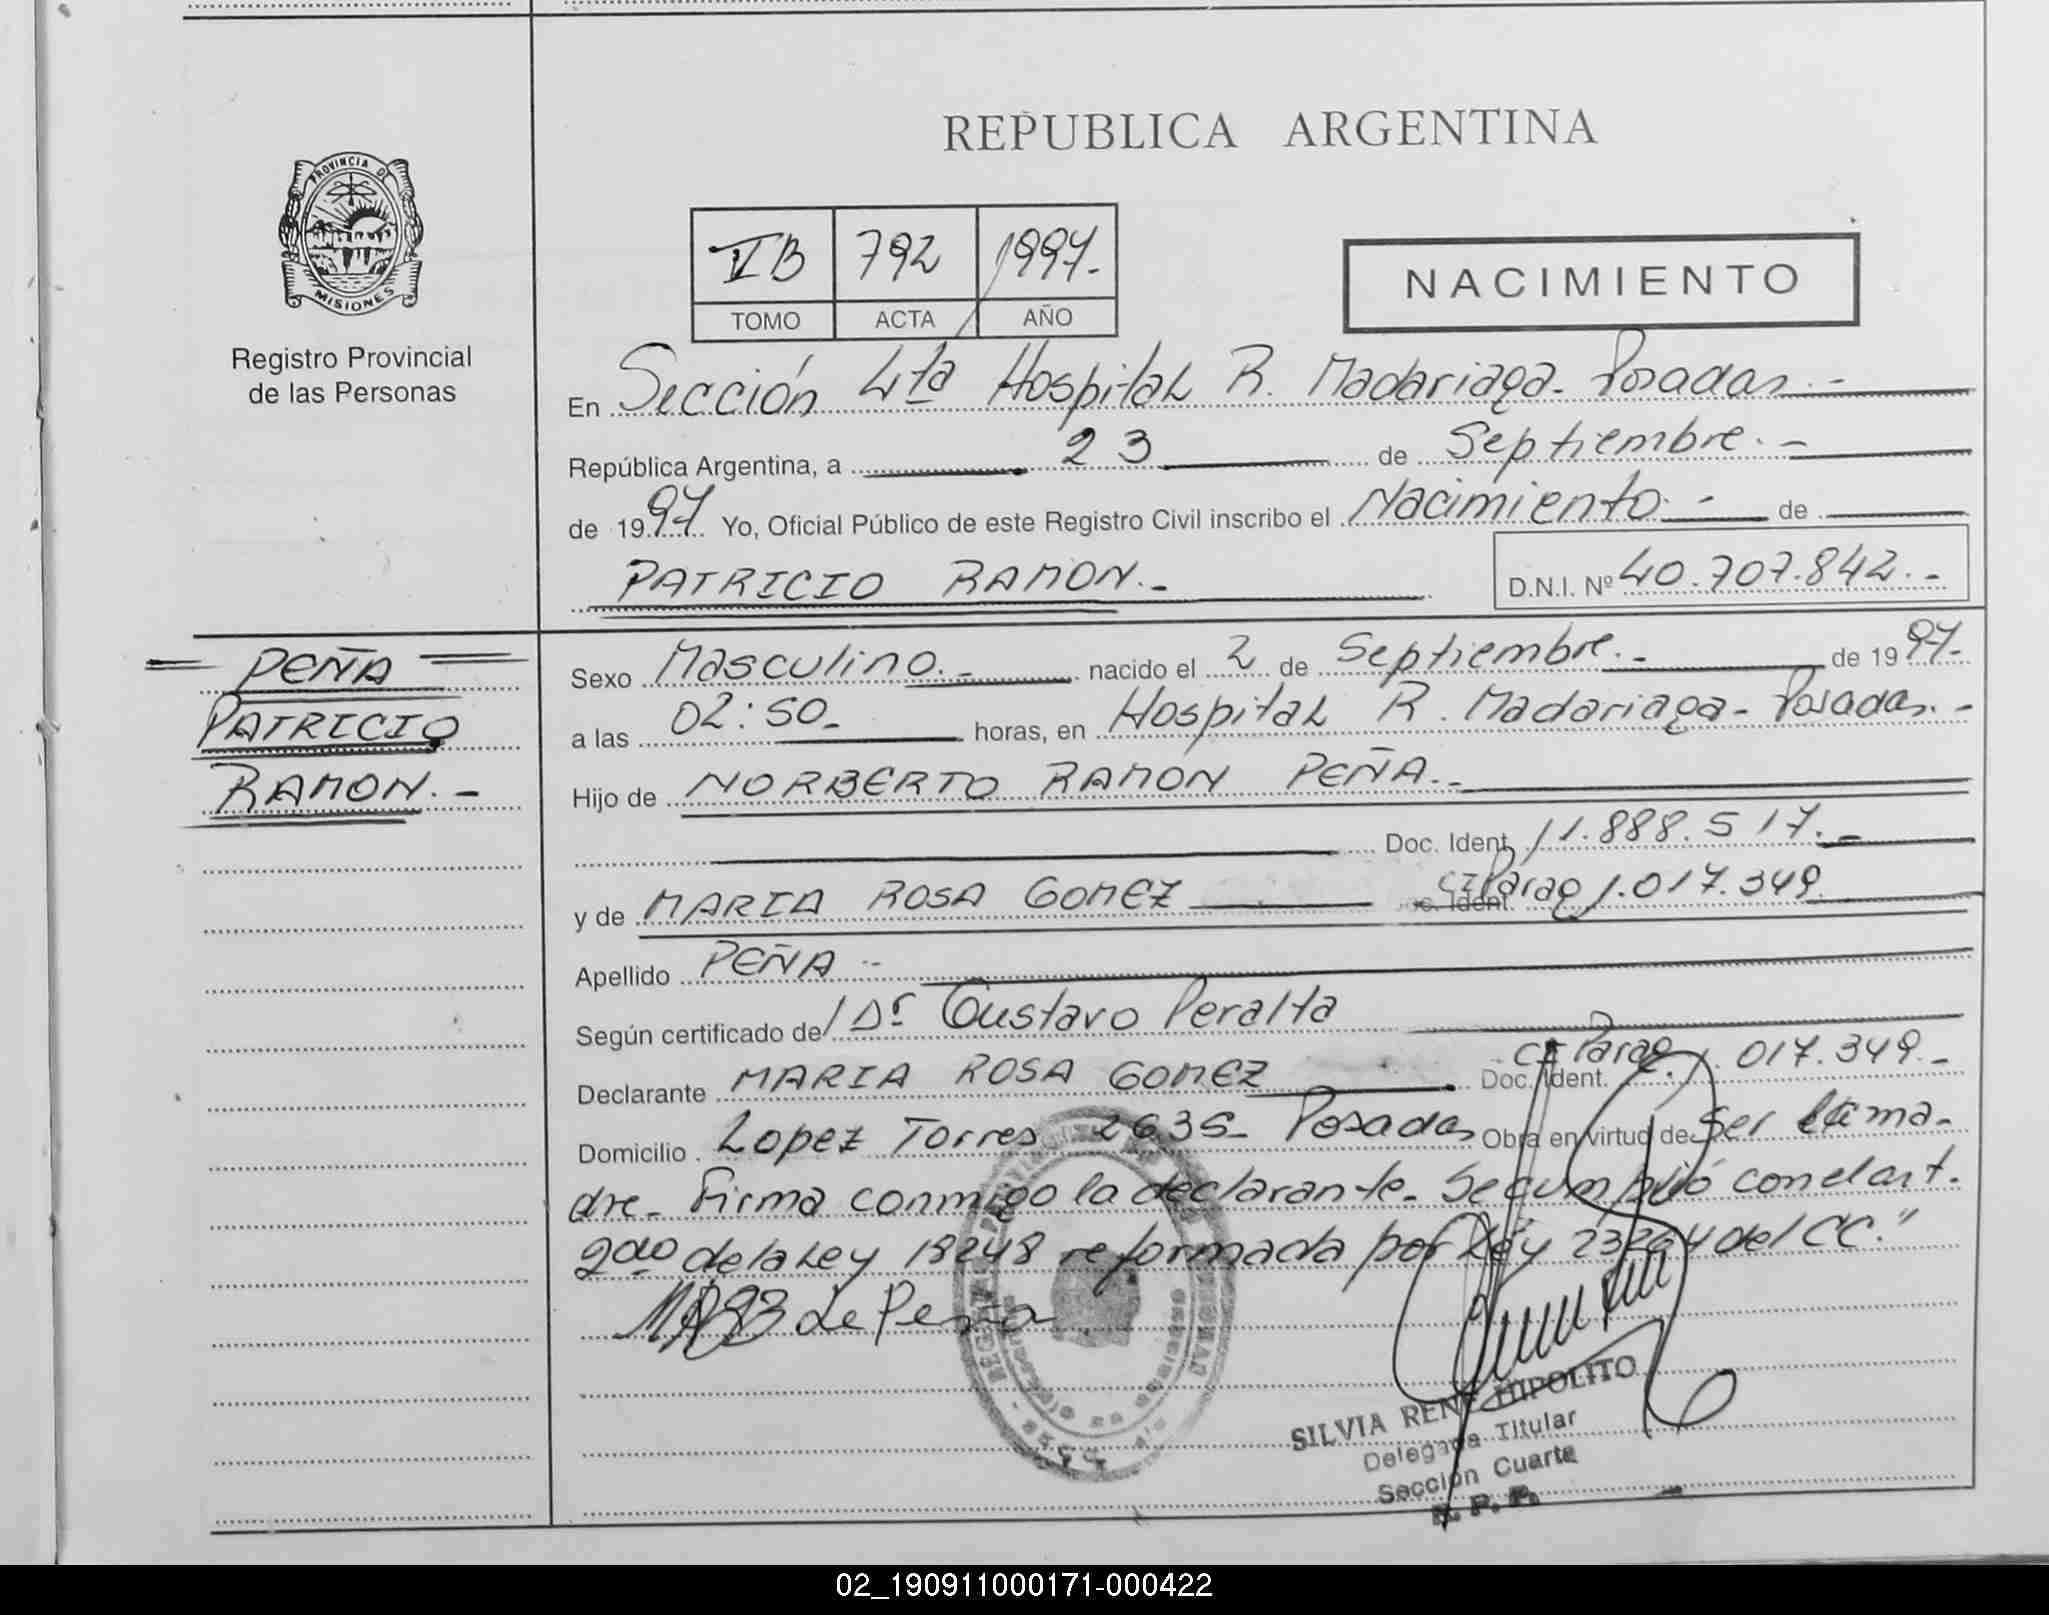 REPUBLICA ARGENTINA
PROVINCIA DE
MISIONES
Registro Provincial
de las Personas
VB 792 1997.-
TOMO ACTA AÑO
NACIMIENTO
En Sección 4ta Hospital R. Madariaga - Posadas.-
República Argentina, a 23 de Septiembre.-
de 1997 Yo, Oficial Público de este Registro Civil inscribo el Nacimiento.- de
PATRICIO RAMON.- D.N.I. Nº 40.707.842.-
PEÑA
PATRICIO
RAMON.-
Sexo Masculino.- nacido el 2 de Septiembre.- de 1997.-
a las 02:50.- horas, en Hospital R. Madariaga - Posadas.-
Hijo de NORBERTO RAMON PEÑA.-
Doc. Ident. 11.888.517.-
y de MARIA ROSA GOMEZ Doc. Ident. CI Parag 1.017.349.
Apellido PEÑA.-
Según certificado de/ Dr Gustavo Peralta
Declarante MARIA ROSA GOMEZ Doc. Ident. CI Parag. 1.017.349.-
Domicilio Lopez Torres 2635- Posadas Obra en virtud de Ser la ma-
dre- Firma conmigo la declarante- Se cumplió con el art.
2do de la Ley 18248 reformada por Ley 23264 del CC."
de Peña
SILVIA RENE HIPOLITO
Delegada Titular
Sección Cuarta
R. P. P.
02_190911000171-000422